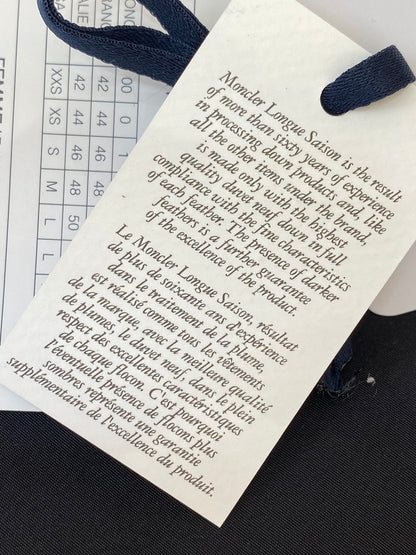 Moncler Longue Saison is the result
of more than sixty years of experience
in processing down products and, like
all the other items under the brand,
is made only with the highest
quality duvet neuf down in full
compliance with the fine characteristics
of each feather. The presence of darker
feathers is a further guarantee
of the excellence of the product.
Le Moncler Longue Saison, résultat
de plus de soixante ans d'expérience
dans le traitement de la plume,
est réalisé comme tous les vêtements
de la marque, avec la meilleure qualité
de plumes: le duvet neuf, dans le plein
respect des excellentes caractéristiques
de chaque flocon. C'est pourquoi
l'éventuelle présence de flocons plus
sombres représente une garantie
supplémentaire de l'excellence du produit.
XXS 42 42 00
XS 44 44 0
S 46 46 1
M 48 48
L 50
L